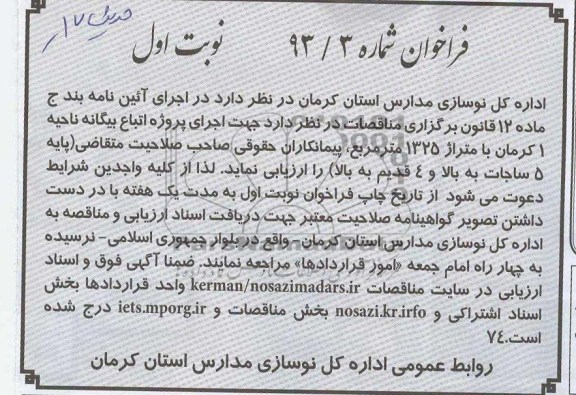 فراخوان شماره ۳ / ۹۳ نوبت اول
اداره کل نوسازی مدارس استان کرمان در نظر دارد در اجرای آئین نامه بند ج
ماده ۱۲ قانون برگزاری مناقصات در نظر دارد جهت اجرای پروژه اتباع بیگانه ناحیه
۱ کرمان با متراژ ۱۳۲۵ مترمربع، پیمانکاران حقوقی صاحب صلاحیت متقاضی(پایه
۵ ساجات به بالا و ٤ قدیم به بالا) را ارزیابی نماید. لذا از کلیه واجدین شرایط
دعوت می شود از تاریخ چاپ فراخوان نوبت اول به مدت یک هفته با در دست
داشتن تصویر گواهینامه صلاحیت معتبر جهت دریافت اسناد ارزیابی و مناقصه به
اداره کل نوسازی مدارس استان کرمان- واقع در بلوار جمهوری اسلامی- نرسیده
به چهار راه امام جمعه «امور قراردادها» مراجعه نمایند. ضمنا آگهی فوق و اسناد
ارزیابی در سایت مناقصات kerman/nosazimadars.ir واحد قراردادها بخش
اسناد اشتراکی و nosazi.kr.irfo بخش مناقصات و iets.mporg.ir درج شده
است.۷٤
روابط عمومی اداره کل نوسازی مدارس استان کرمان